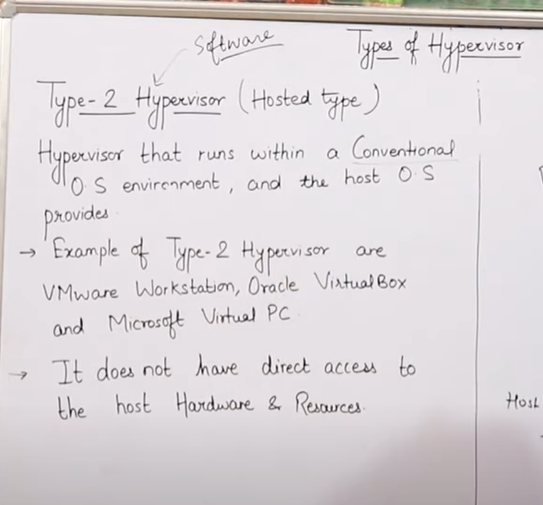 Software
Types of Hypervisor
Type-2 Hypervisor (Hosted type)
Hypervisor that runs within a Conventional
O.S environment, and the host O.S
provides.
→ Example of Type-2 Hypervisor are
VMware Workstation, Oracle VirtualBox
and Microsoft Virtual PC.
→ It does not have direct access to
the host Hardware & Resources.
Host